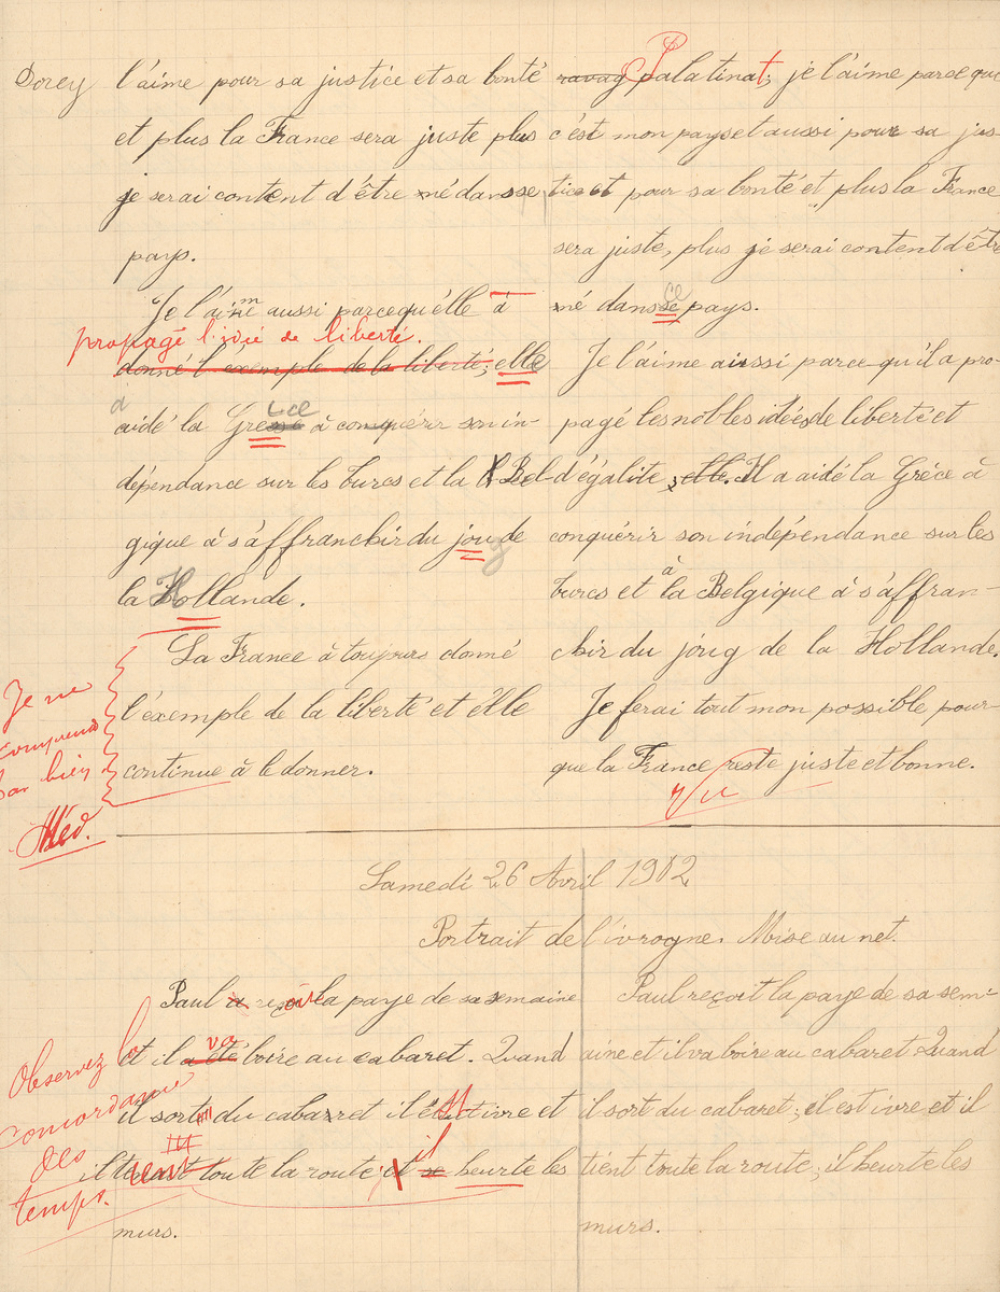 Dorey
l'aime pour sa justice et sa bonté
et plus la France sera juste plus
je serai content d'être né dans se
pays.
Je l'aime aussi parce qu'élle à
propagé l'idée de liberté.
donné l'exemple de la liberté; elle
a
aidé la Grece à conquérir son in-
dépendance sur les turcs et la Bel-
gique à s'affranchir du joug de
la Hollande.
La France à toujours donné
l'exemple de la liberté et élle
continue à le donner.
Je ne
comprends
pas bien
Méd.
ravag Palatinat; je l'aime parce que
c'est mon pays et aussi pour sa jus-
tice et pour sa bonté et, plus la France
sera juste, plus je serai content d'être
né dans se pays.
ce
Je l'aime aussi parce qu'il a pro-
pagé les nobles idées de liberté et
d'égalité, elle. Il a aidé la Gréce à
conquérir son indépendance sur les
turcs et à la Belgique à s'affran-
chir du joug de la Hollande.
Je ferai tout mon possible pour-
que la France reste juste et bonne.
Samedi 26 Avril 1902
Portrait de l'ivrogne. Mise au net.
Paul a reçoit la paye de sa semaine
et il a été va boire au cabaret. Quand
il sorts du cabarret il était ivre et
il tient toute la route; et il se heurte les
murs.
Observez la
concordance
des
temps.
Paul reçoit la paye de sa sem-
aine et il va boire au cabaret Quand
il sort du cabaret; il est ivre et il
tient toute la route; il heurte les
murs.